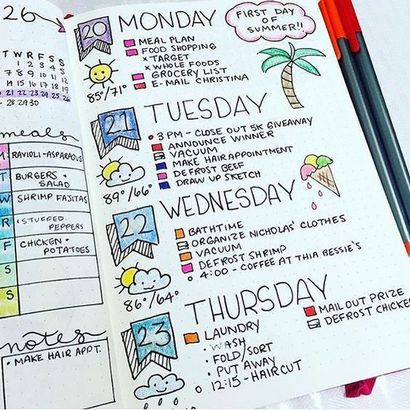 26
T W R F S S
1 2 3 4 5
7 8 9 10 11 12
14 15 16 17 18 19
21 22 23 24 25 26
28 29 30
meals
M RAVIOLI - ASPARAGUS
T BURGERS + SALAD
W SHRIMP FAJITAS
R STUFFED PEPPERS
F CHICKEN + POTATOES
S
S
notes
MAKE HAIR APPT.
20 MONDAY
FIRST DAY OF SUMMER!!
MEAL PLAN
FOOD SHOPPING
x TARGET
x WHOLE FOODS
GROCERY LIST
E-MAIL CHRISTINA
85°/71°
21 TUESDAY
3 PM - CLOSE OUT 5K GIVEAWAY
ANNOUNCE WINNER
VACUUM
MAKE HAIR APPOINTMENT
DEFROST BEEF
DRAW UP SKETCH
89°/66°
22 WEDNESDAY
BATHTIME
ORGANIZE NICHOLAS' CLOTHES
VACUUM
DEFROST SHRIMP
4:00 - COFFEE AT THIA BESSIE'S
86°/64°
23 THURSDAY
LAUNDRY
WASH
FOLD/SORT
PUT AWAY
12:15 - HAIRCUT
MAIL OUT PRIZE
DEFROST CHICKE